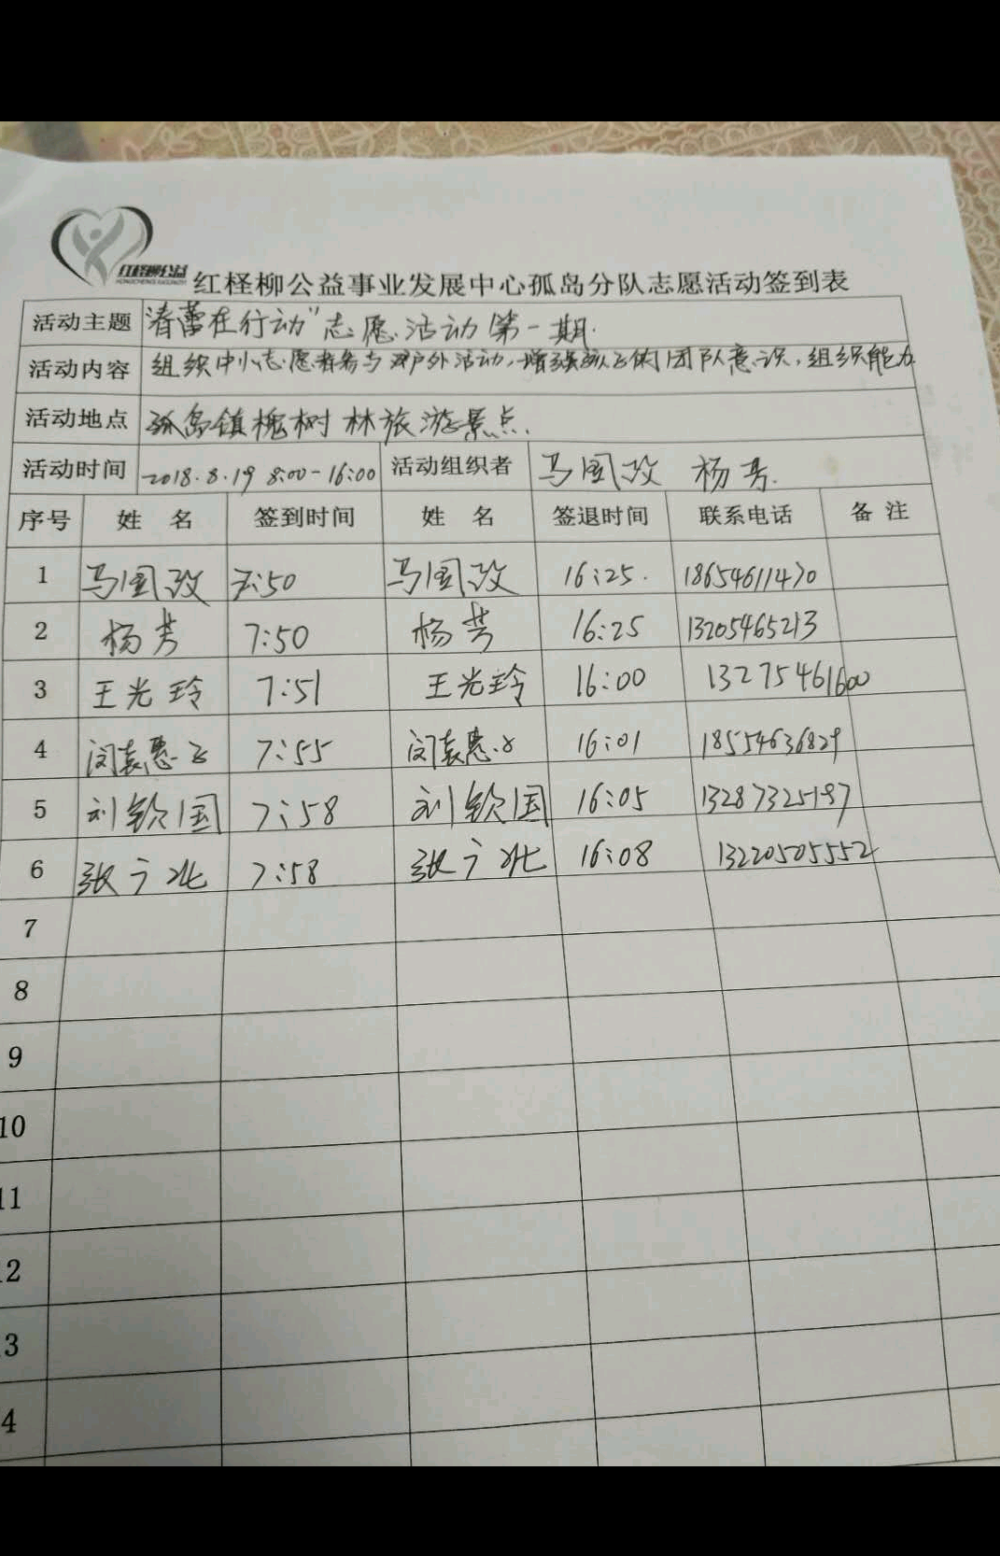 红柽柳公益
红柽柳公益事业发展中心孤岛分队志愿活动签到表
活动主题 "春蕾在行动"志愿活动第一期.
活动内容 组织中小志愿者参与户外活动,增强团队意识,组织能力
活动地点 孤岛镇槐树林旅游景点.
活动时间 2018.8.19 8:00-16:00 活动组织者 马国政 杨芳.
序号 姓名 签到时间 姓名 签退时间 联系电话 备注
1 马国政 7:50 马国政 16:25. 18654611470
2 杨芳 7:50 杨芳 16:25 13205465213
3 王光玲 7:51 王光玲 16:00 13275461600
4 闵袁惠 7:55 闵袁惠 16:01 18554636829
5 刘钦国 7:58 刘钦国 16:05 13287325197
6 张广北 7:58 张广北 16:08 13220505552
7
8
9
10
11
12
13
14